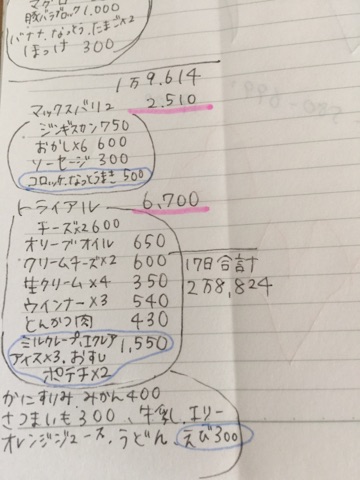 豚バラブロック 1,000
バナナ、なっとう、たまご×2
ほっけ 300
1万9,614
マックスバリュ 2,510
ジンギスカン 750
おかし×6 600
ソーセージ 300
コロッケ、なっとうまき 500
トライアル 6,700
チーズ×2 600
オリーブオイル 650
クリームチーズ×2 600
生クリーム×4 350
ウインナー×3 540
とんかつ肉 430
17日合計
2万8,824
ミルクレープ、エクレア 1,550
アイス×3、おすし
ポテチ×2
かにすりみ みかん 400
さつまいも 300、牛乳、エリー
オレンジジュース、うどん、えび 300